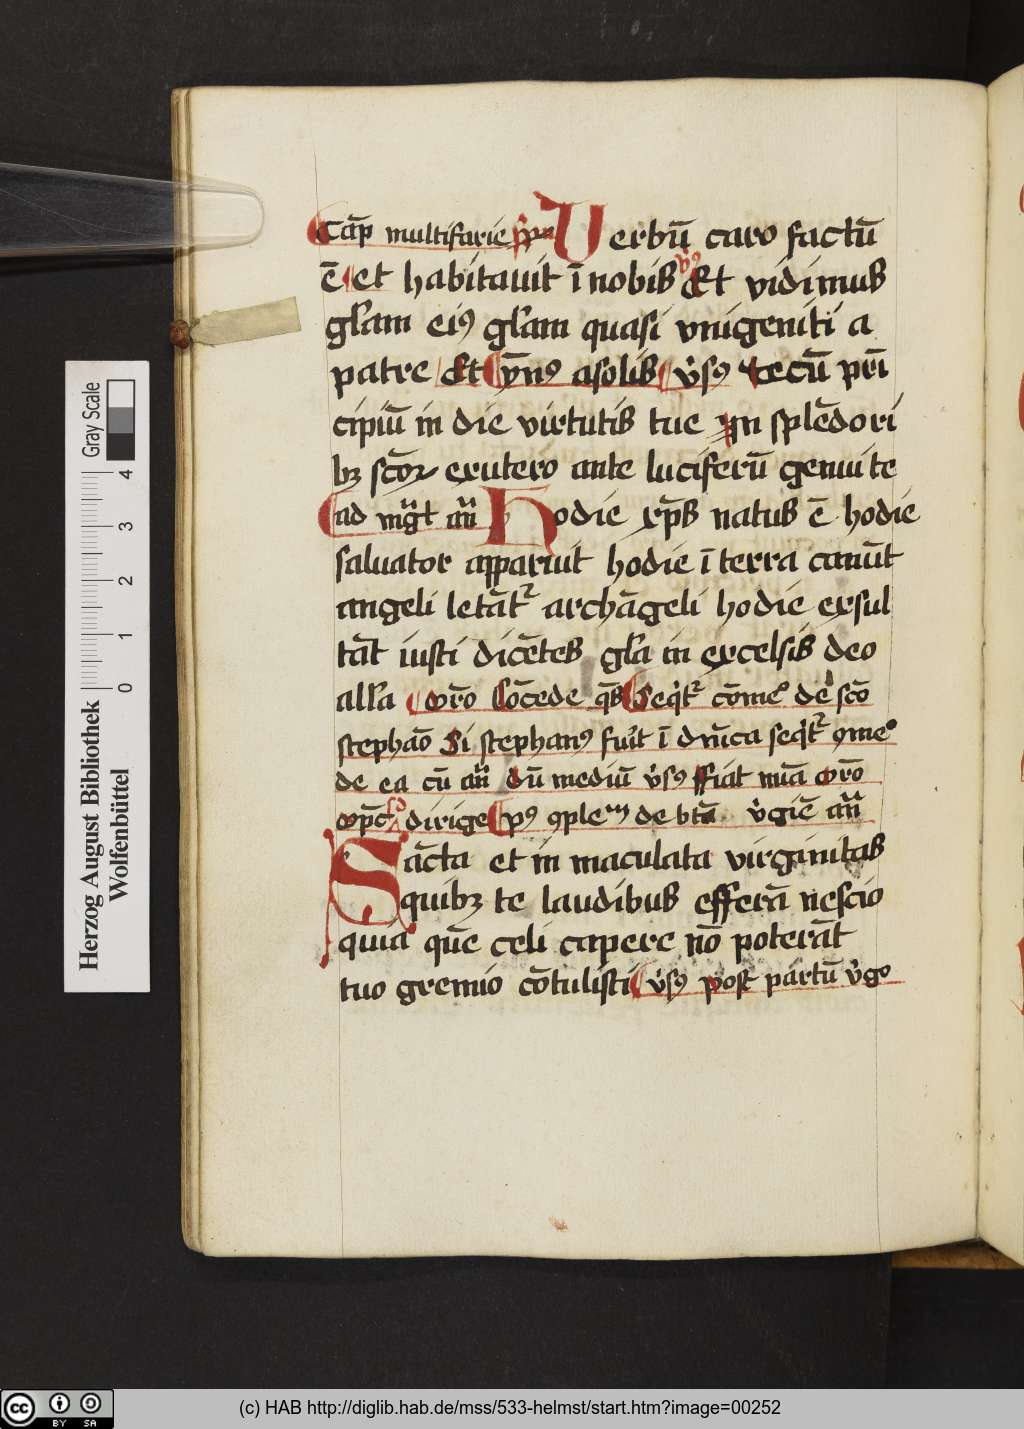 Cāp multifarie Verbū caro factū
ē et habitauit ī nobis Et vidimus
gl'am ei9 gl'am quasi vnigeniti a
patre Et ympn9 asolis v's9 Tecū pri
cipiū in die virtutis tue yn splēdori
bꝫ scōꝝ exutero ante luciferū genui te
ad mḡt an̄ Hodie xp̄s natus ē hodie
saluator apparuit hodie ī terra canūt
angeli letāt᷑ archāgeli hodie exsul
tāt iusti dicētes gl'a in excelsis deo
all'a Orō Cōcede q̄s Seq̇t᷑ cōme° de scō
stephāo Si stephan9 fu'it ī dn̄ica seq̇t᷑ 9me°
de ea cū an̄ dū mediū v's9 ffiat mīa orō
Op̄c dirige p9 9ple de btā v'giē an̄
Sācta et in maculata virginitas
quibꝫ te laudibus efferā nescio
quia quē celi capere nō poterāt
tuo gremio cōtulisti v's9 post partū v'go
Herzog August Bibliothek
Wolfenbüttel
Gray Scale
0 1 2 3 4
BY SA
(c) HAB http://diglib.hab.de/mss/533-helmst/start.htm?image=00252